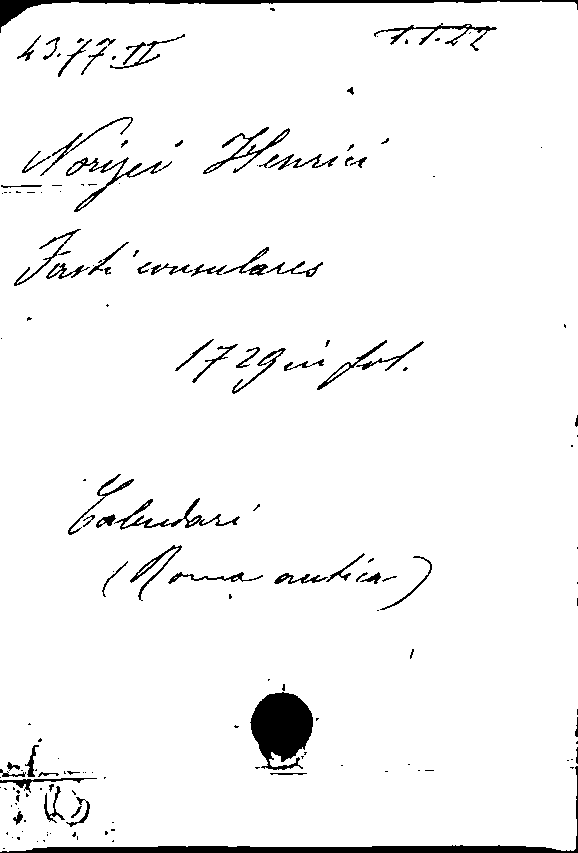 43.77.II
1.1.22
Norisii Henrici
Fasti consulares
1729 in fol.
Calendari
(Roma antica)